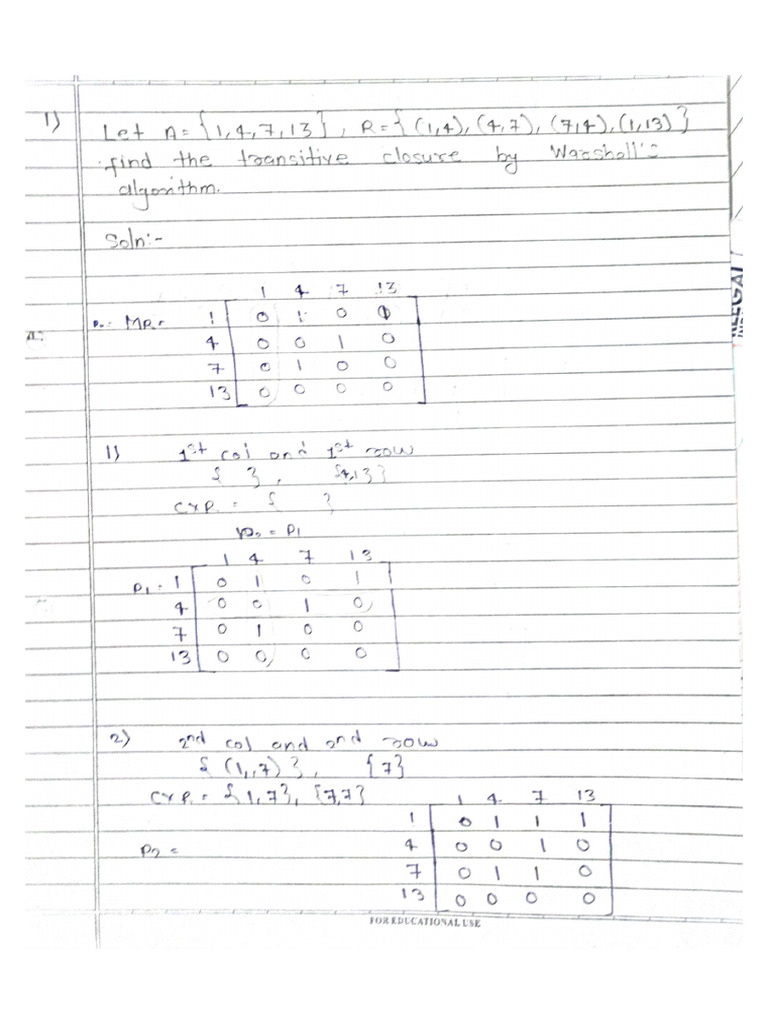 1)
Let A = {1,4,7,13}, R = {(1,4), (4,7), (7,4), (1,13)}
find the transitive closure by Warshall's
algorithm.
Soln:-
1 4 7 13
P₀ = MR = 1 0 1 0 1
4 0 0 1 0
7 0 1 0 0
13 0 0 0 0
1) 1st col and 1st row
{ }, {4,13}
CXR = { }
P₀ = P₁
1 4 7 13
P₁ = 1 0 1 0 1
4 0 0 1 0
7 0 1 0 0
13 0 0 0 0
2) 2nd col and 2nd row
{(1,7)}, {7}
CXR = {1,7}, {7,7}
1 4 7 13
1 0 1 1 1
P₂ = 4 0 0 1 0
7 0 1 1 0
13 0 0 0 0
FOR EDUCATIONAL USE